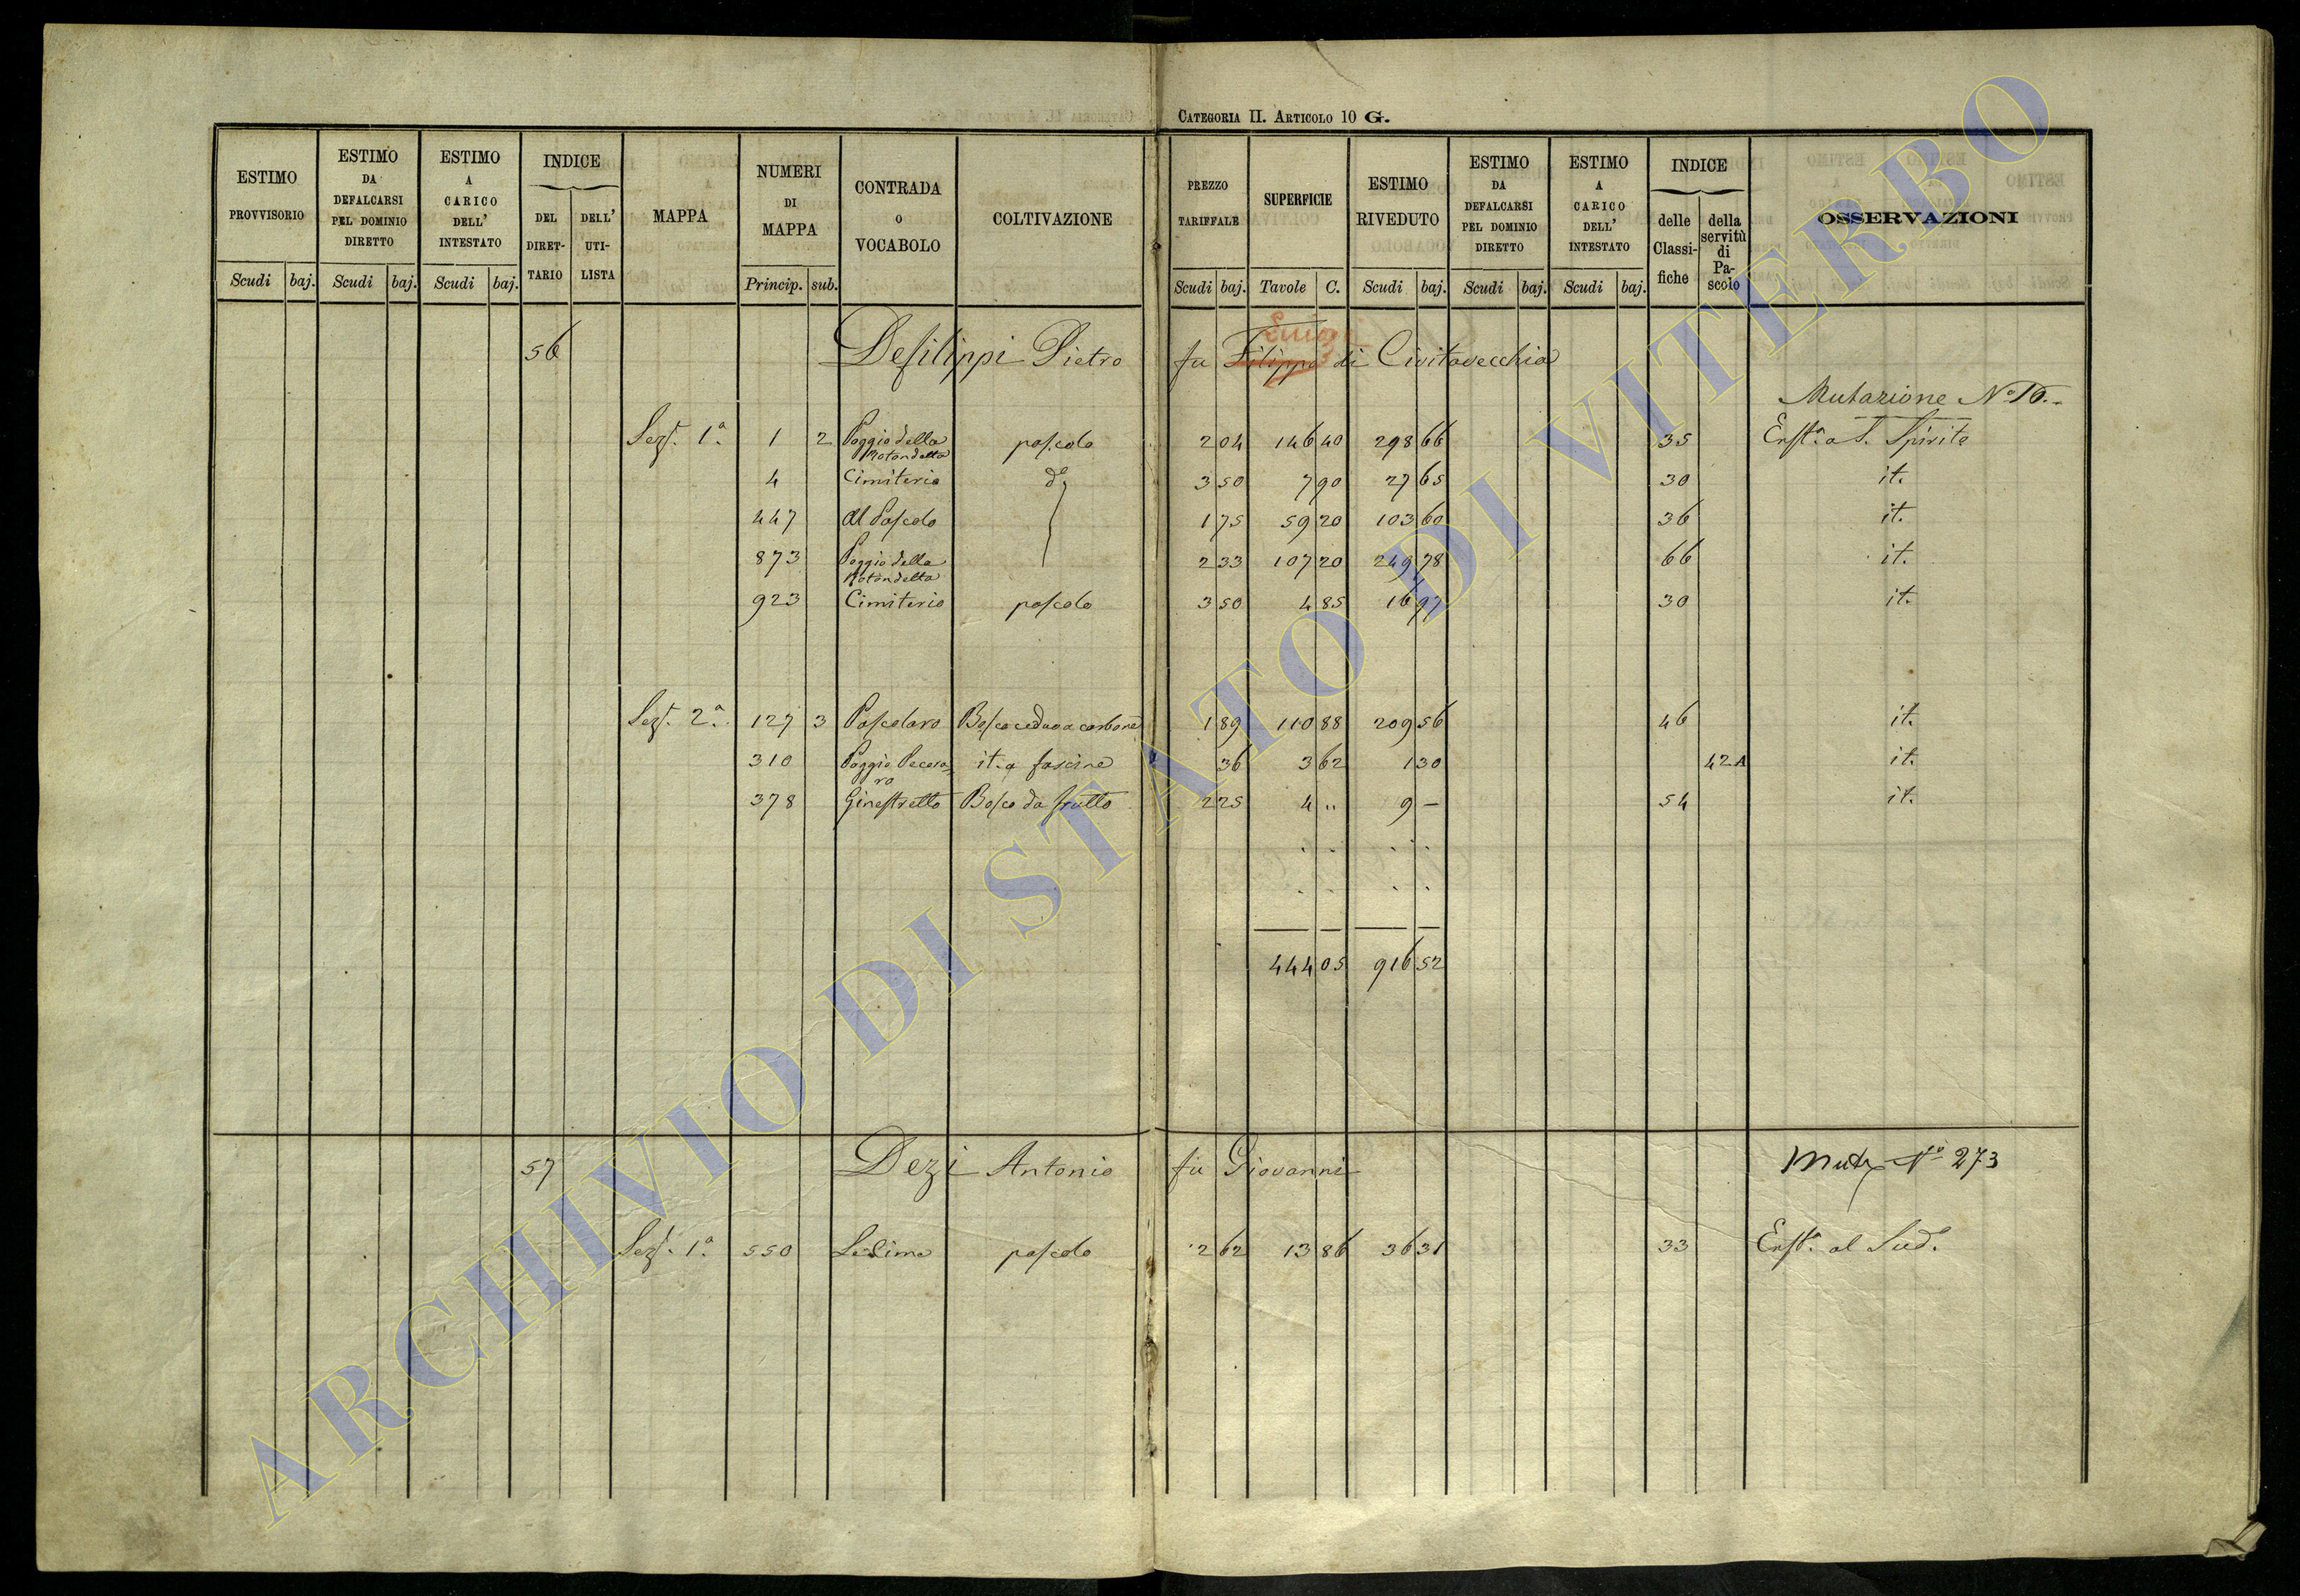 CATEGORIA II. ARTICOLO 10 G.
ESTIMO PROVVISORIO Scudi baj.
ESTIMO DA DEFALCARSI PEL DOMINIO DIRETTO Scudi baj.
ESTIMO A CARICO DELL' INTESTATO Scudi baj.
INDICE DEL DIRET-TARIO DELL' UTI-LISTA
MAPPA
NUMERI DI MAPPA Princip. sub.
CONTRADA O VOCABOLO
COLTIVAZIONE
PREZZO TARIFFALE Scudi baj.
SUPERFICIE Tavole C.
ESTIMO RIVEDUTO Scudi baj.
ESTIMO DA DEFALCARSI PEL DOMINIO DIRETTO Scudi baj.
ESTIMO A CARICO DELL' INTESTATO Scudi baj.
INDICE delle Classi-fiche della servitù di Pa-scolo
OSSERVAZIONI
56 Defilippi Pietro fu Filippo di Civitavecchia
Luigi
Mutazione N.o 10.
Sez. 1a. 1 2 Poggio della Rotondella pascolo 2 04 146 40 298 66 35 Enfta. a S. Spirito
4 Cimiterio do 3 50 7 90 27 65 30 it.
447 Al Pascolo 1 75 59 20 103 60 36 it.
873 Poggio della Rotondella 2 33 107 20 249 78 66 it.
923 Cimiterio pascolo 3 50 4 85 16 97 30 it.
Sez. 2a. 127 3 Pascolaro Bosco ceduo a carbone 1 89 110 88 209 56 46 it.
310 Poggio Pecora=ro it. a fascine 36 3 62 1 30 42A it.
378 Ginestretto Bosco da frutto 2 25 4 „ 9 — 54 it.
444 05 916 52
57 Dezi Antonio fu Giovanni Mutz. No 273
Sez. 1a. 550 Le Lime pascolo 2 62 13 86 36 31 33 Enfta. al Sud.
ARCHIVIO DI STATO DI VITERBO